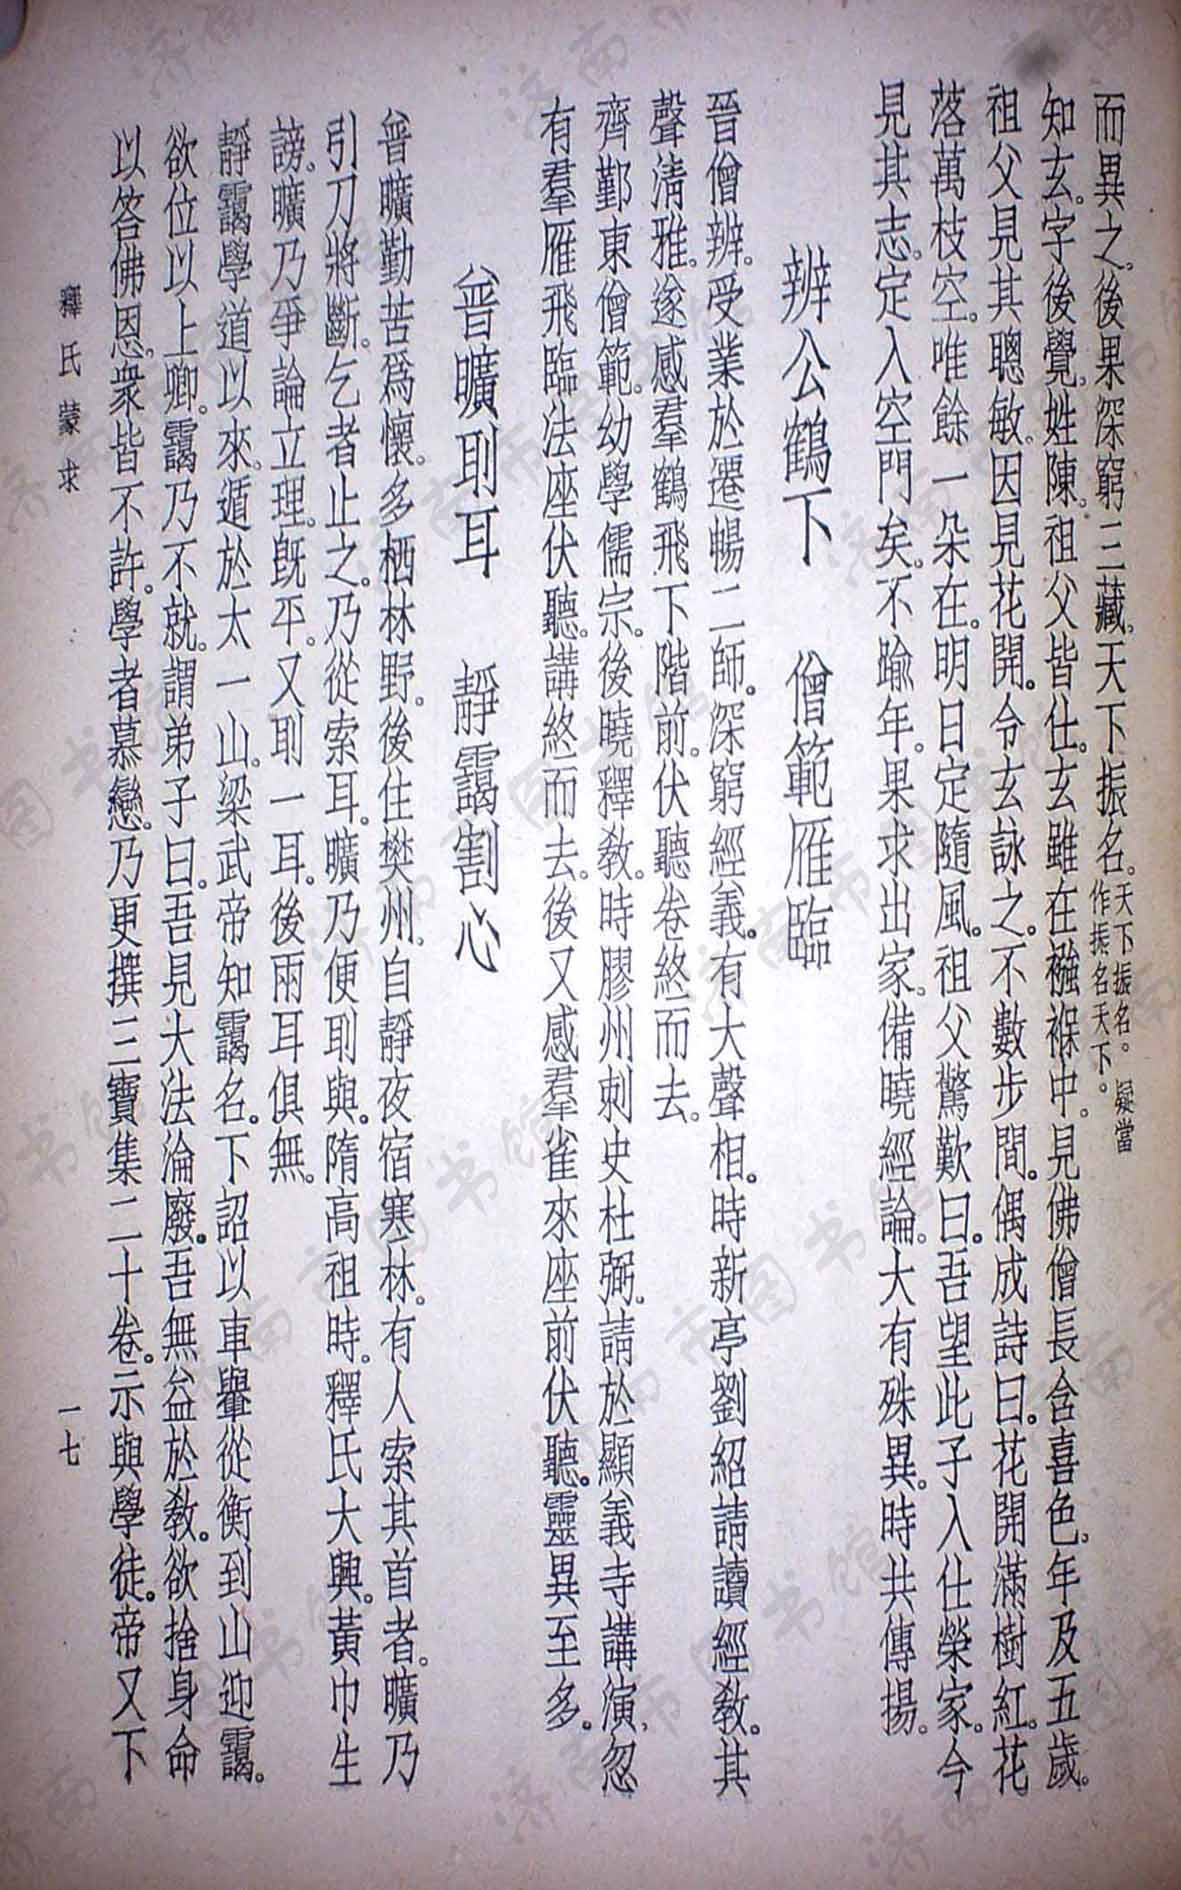 而異之。後果深窮三藏。天下振名。天下振名。疑當作振名天下。
知玄。字後覺。姓陳。祖父皆仕。玄雖在襁褓中。見佛僧長含喜色。年及五歲。
祖父見其聰敏。因見花開。令玄詠之。不數步間。偶成詩曰。花開滿樹紅。花
落萬枝空。唯餘一朵在。明日定隨風。祖父驚歎曰。吾望此子入仕榮家。今
見其志。定入空門矣。不踰年。果求出家。備曉經論。大有殊異。時共傳揚。
辨公鶴下　僧範雁臨
晉僧辨。受業於遷暢二師。深窮經義。有大聲相。時新亭劉紹請讀經教。其
聲清雅。遂感羣鶴飛下階前。伏聽卷終而去。
齊鄴東僧範。幼學儒宗。後曉釋教。時膠州刺史杜弼。請於顯義寺講演。忽
有羣雁飛臨法座伏聽。講終而去。後又感羣雀來座前伏聽。靈異至多。
普曠刵耳　靜靄割心
普曠勤苦爲懷。多栖林野。後住樊州。自靜夜宿寒林。有人索其首者。曠乃
引刀將斷。乞者止之。乃從索耳。曠乃便刵與。隋高祖時。釋氏大興。黃巾生
謗。曠乃爭論立理。旣平。又刵一耳。後兩耳俱無。
靜靄學道以來。遁於太一山。梁武帝知靄名。下詔以車轝從衡到山迎靄。
欲位以上卿。靄乃不就。謂弟子曰。吾見大法淪廢。吾無益於教。欲捨身命
以答佛恩。衆皆不許。學者慕戀。乃更撰三寶集二十卷。示與學徒。帝又下
釋氏蒙求
一七